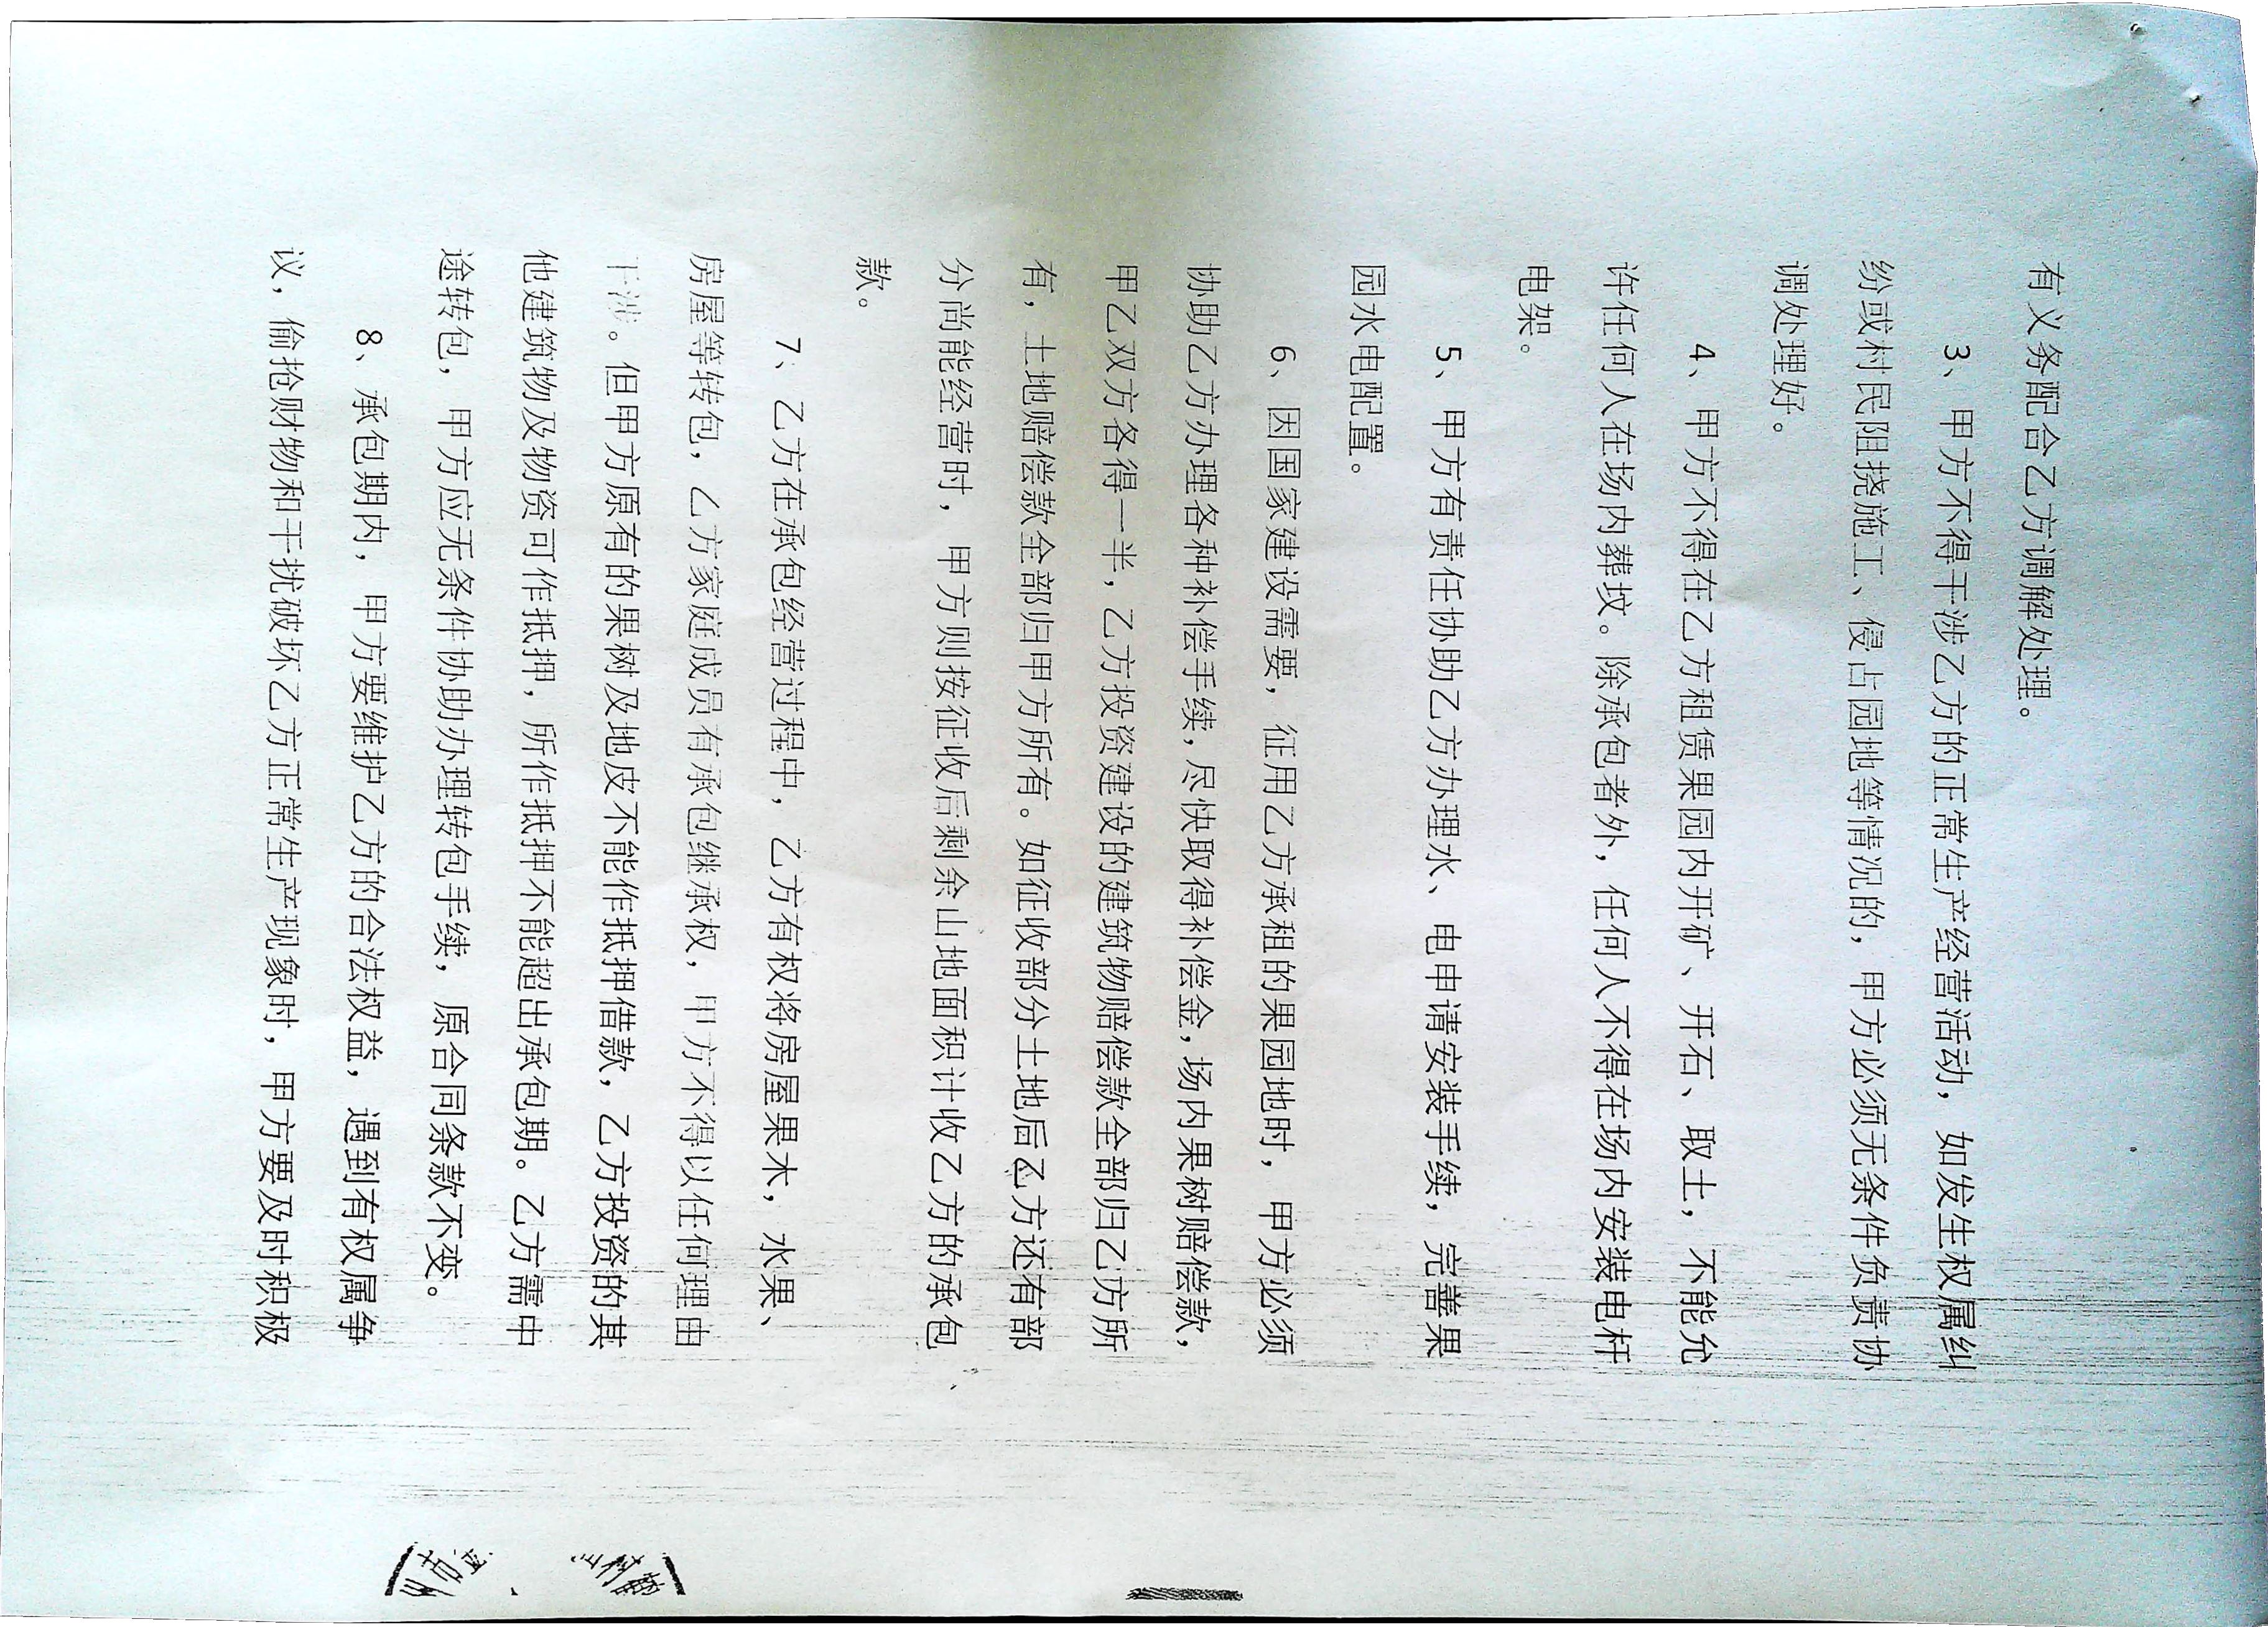 有义务配合乙方调解处理。
3、甲方不得干涉乙方的正常生产经营活动，如发生权属纠
纷或村民阻挠施工、侵占园地等情况的，甲方必须无条件负责协
调处理好。
4、甲方不得在乙方租赁果园内开矿、开石、取土，不能允
许任何人在场内葬坟。除承包者外，任何人不得在场内安装电杆
电架。
5、甲方有责任协助乙方办理水、电申请安装手续，完善果
园水电配置。
6、因国家建设需要，征用乙方承租的果园地时，甲方必须
协助乙方办理各种补偿手续，尽快取得补偿金，场内果树赔偿款，
甲乙双方各得一半，乙方投资建设的建筑物赔偿款全部归乙方所
有，土地赔偿款全部归甲方所有。如征收部分土地后乙方还有部
分尚能经营时，甲方则按征收后剩余山地面积计收乙方的承包
款。
7、乙方在承包经营过程中，乙方有权将房屋果木，水果、
房屋等转包，乙方家庭成员有承包继承权，甲方不得以任何理由
干涉。但甲方原有的果树及地皮不能作抵押借款，乙方投资的其
他建筑物及物资可作抵押，所作抵押不能超出承包期。乙方需中
途转包，甲方应无条件协助办理转包手续，原合同条款不变。
8、承包期内，甲方要维护乙方的合法权益，遇到有权属争
议，偷抢财物和干扰破坏乙方正常生产现象时，甲方要及时积极